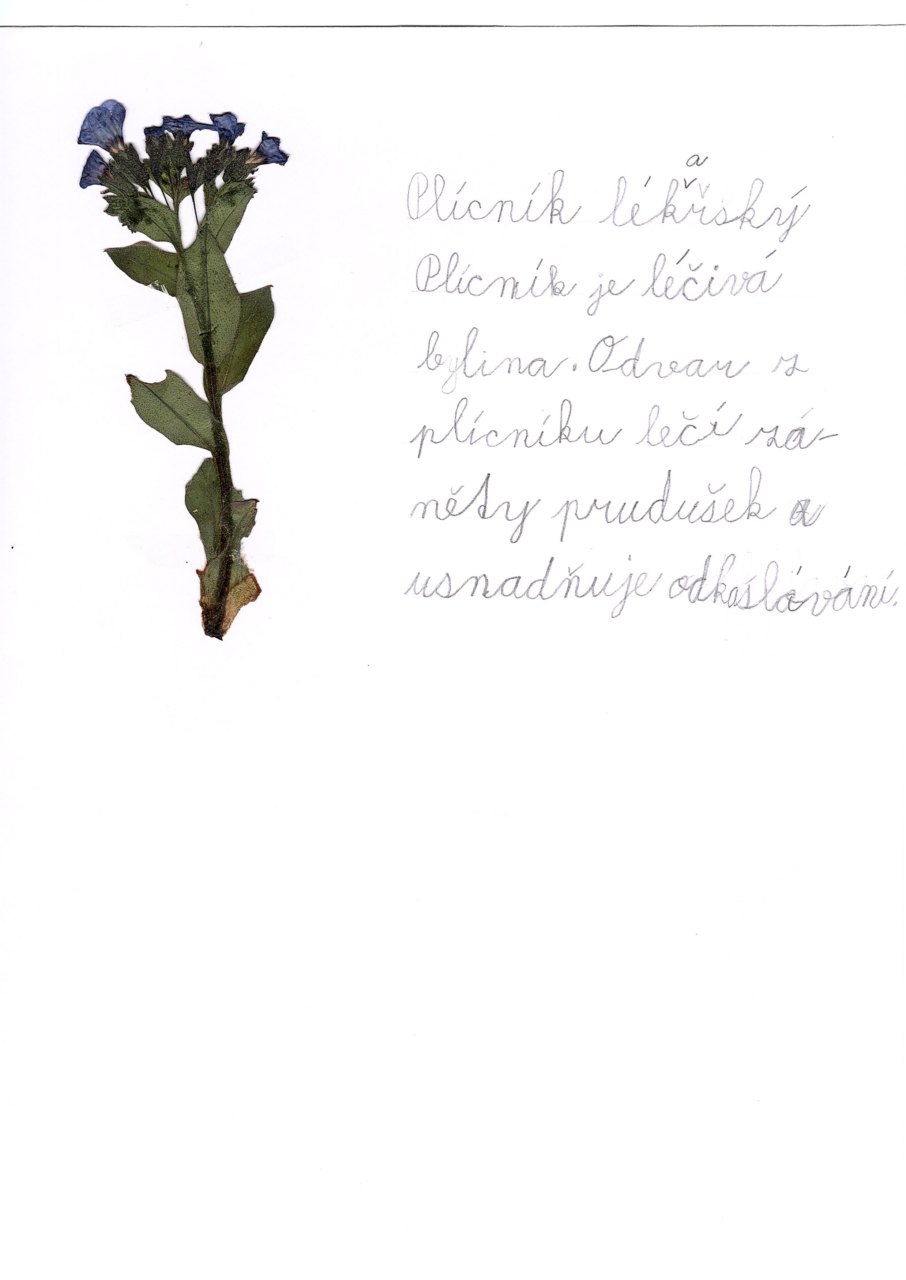 Plícník lékařský
Plícník je léčivá
bylina. Odvar z
plícníku léčí zá-
něty prudušek a
usnadňuje odkašlávání.